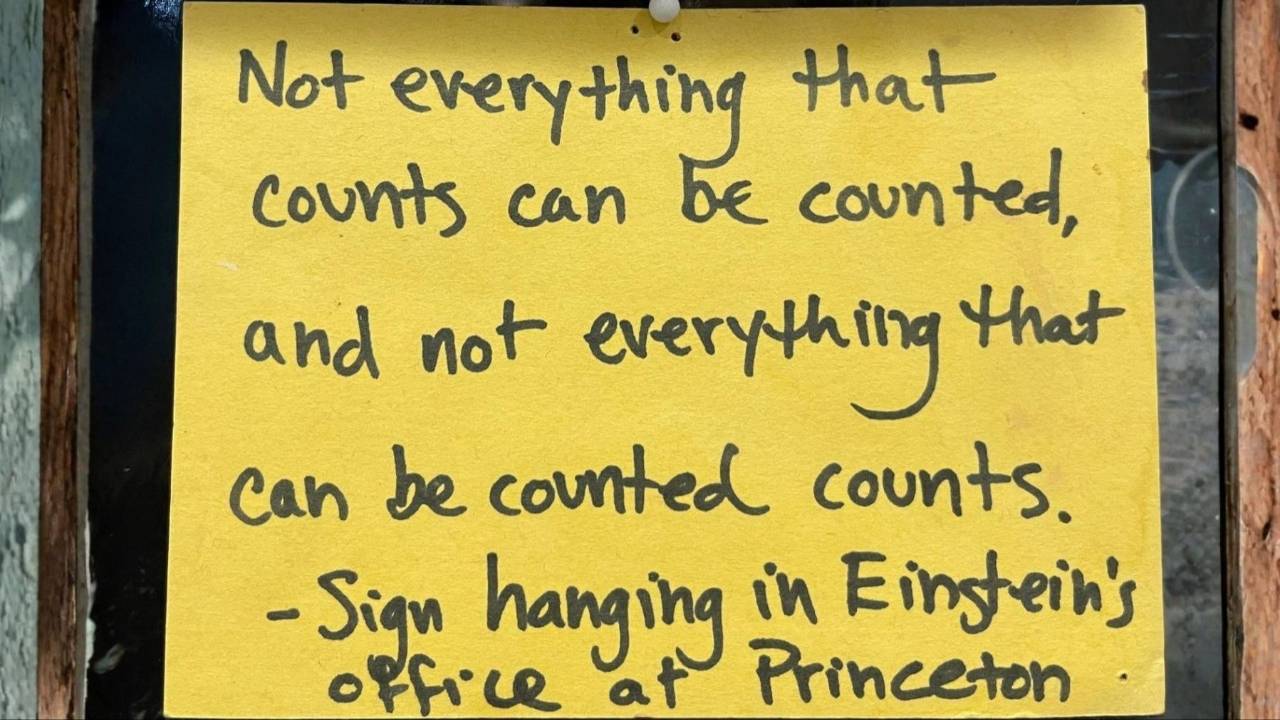 Not everything that
counts can be counted,
and not everything that
can be counted counts.
- Sign hanging in Einstein's
office at Princeton